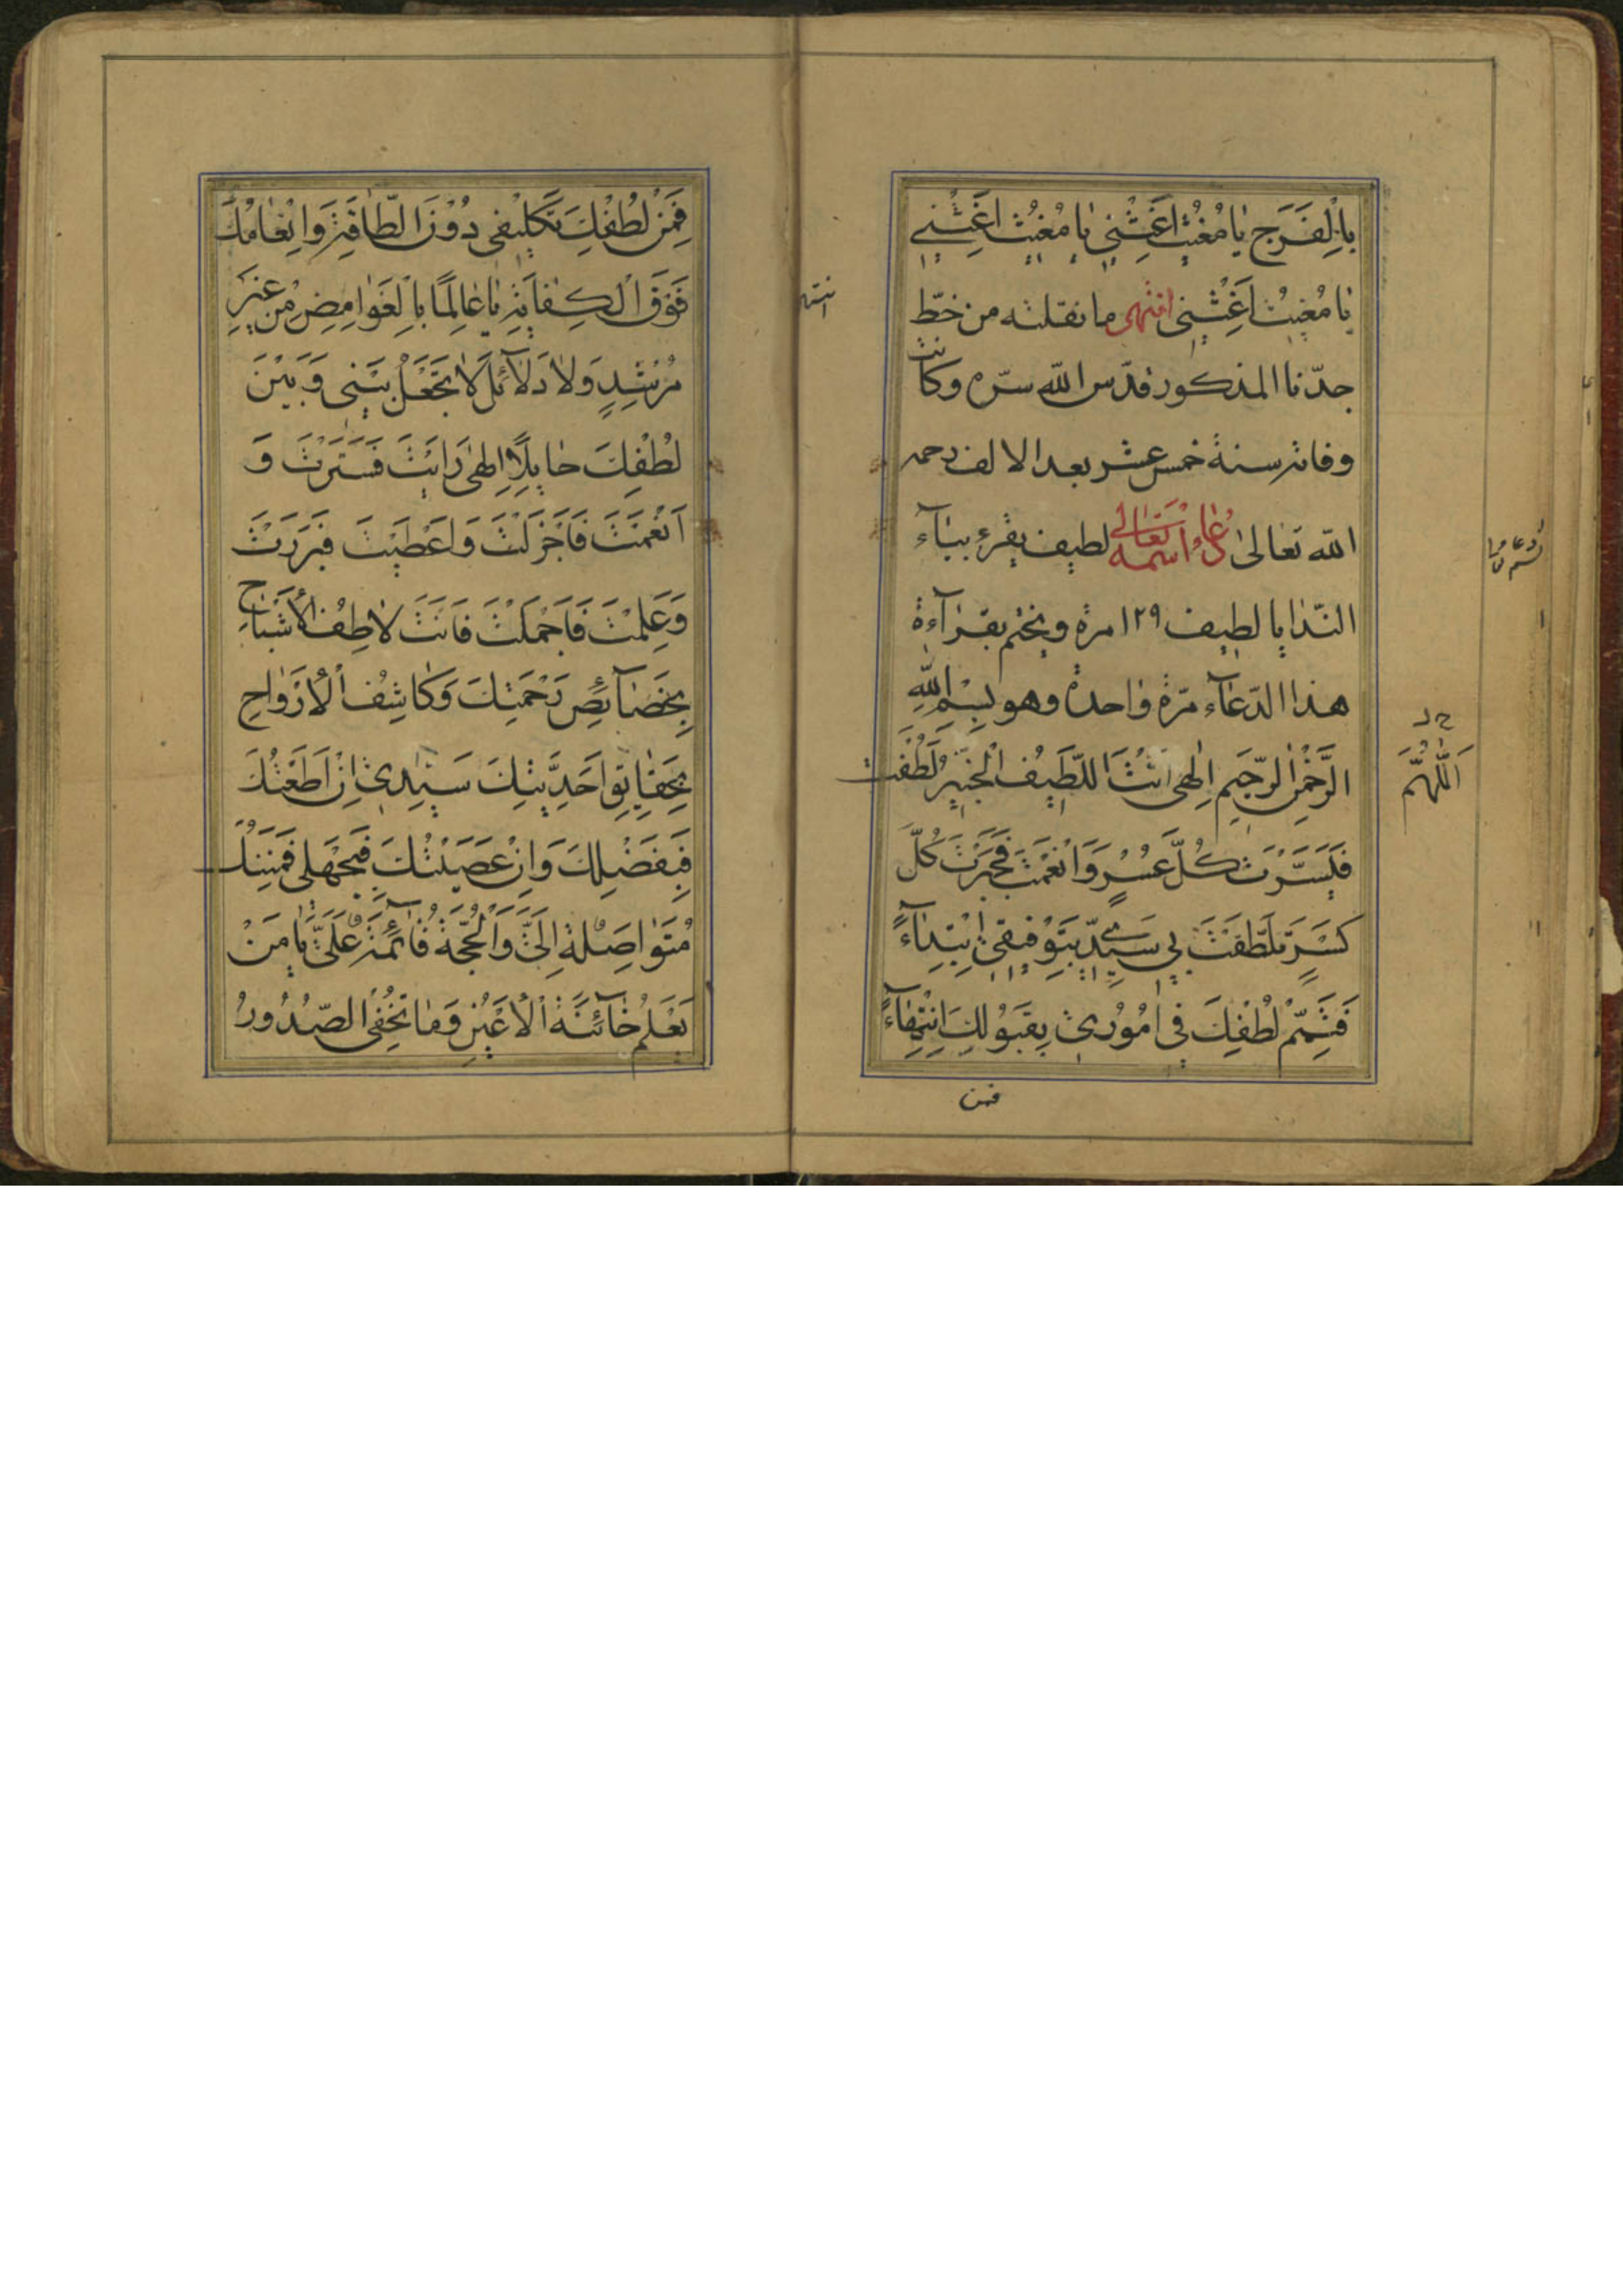 بِالْفَرَجِ يَا مُغِيْثُ اَغِثْنِي يَا مُغِيْثُ اَغِثْنِي
يَا مُغِيْثُ اَغِثْنِي انتهى ما نقلته من خطّ
جدّنا المذكور قدّس الله سرّه وكانت
وفاته سنة خمس عشر بعد الالف رحمه
الله تعالى دُعَاءُ اسْمه تَعَالى لطيف يقرء بيآء
النّدا يا لطيف ١٢٩ مرة ويختم بقرآءة
هذا الدّعآء مرّة واحدة وهو بِسْمِ اللهِ
الرَّحْمٰنِ الرَّحِيمِ اِلٰهِى اَنْتَ اللَّطِيْفُ الْخَبِيْرُ لَطُفْتَ
فَيَسَّرْتَ كُلَّ عُسْرٍ وَاَنْعَمْتَ فَجَبَرْتَ كُلَّ
كَسْرٍ تَلَطَّفْتَ بِي سَيِّدِي بِتَوْفِيْقِى اِبْتِدَآءً
فَتَمِّمْ لُطْفَكَ فِى اُمُوْرِى بِقَبُوْلِكَ اِنْتِهَآءً
فمن
اَللّٰهُمَّ
فَمِنْ لُطْفِكَ تَكْلِيْفِى دُوْنَ الطَّاقَةِ وَاِنْعَامُكَ
فَوْقَ الْكِفَايَةِ يَا عَالِمًا بِالْغَوَامِضِ مِنْ غَيْرِ
مُرْشِدٍ وَلَا دَلَآئِلَ لَا تَجْعَلْ بَيْنِى وَبَيْنَ
لُطْفِكَ حَايِلًا اِلٰهِى رَاَيْتَ فَسَتَرْتَ وَ
اَنْعَمْتَ فَاَجْزَلْتَ وَاَعْطَيْتَ فَبَرَرْتَ
وَعَلِمْتَ فَاَجْمَلْتَ فَاَنْتَ لَاطِفُ الْاَشْبَاحِ
بِخَصَآئِصِ رَحْمَتِكَ وَكَاشِفُ الْاَرْوَاحِ
بِحَقَايِقِ اَحَدِيَّتِكَ سَيِّدِى اِنْ اَطَعْتُكَ
فَبِفَضْلِكَ وَاِنْ عَصَيْتُكَ فَبِجَهْلِى فَمِنَنُكَ
مُتَوَاصِلَةٌ اِلَىَّ وَالْحُجَّةُ قَآئِمَةٌ عَلَىَّ يَا مَنْ
يَعْلَمُ خَآئِنَةَ الْاَعْيُنِ وَمَا تُخْفِى الصُّدُوْرُ